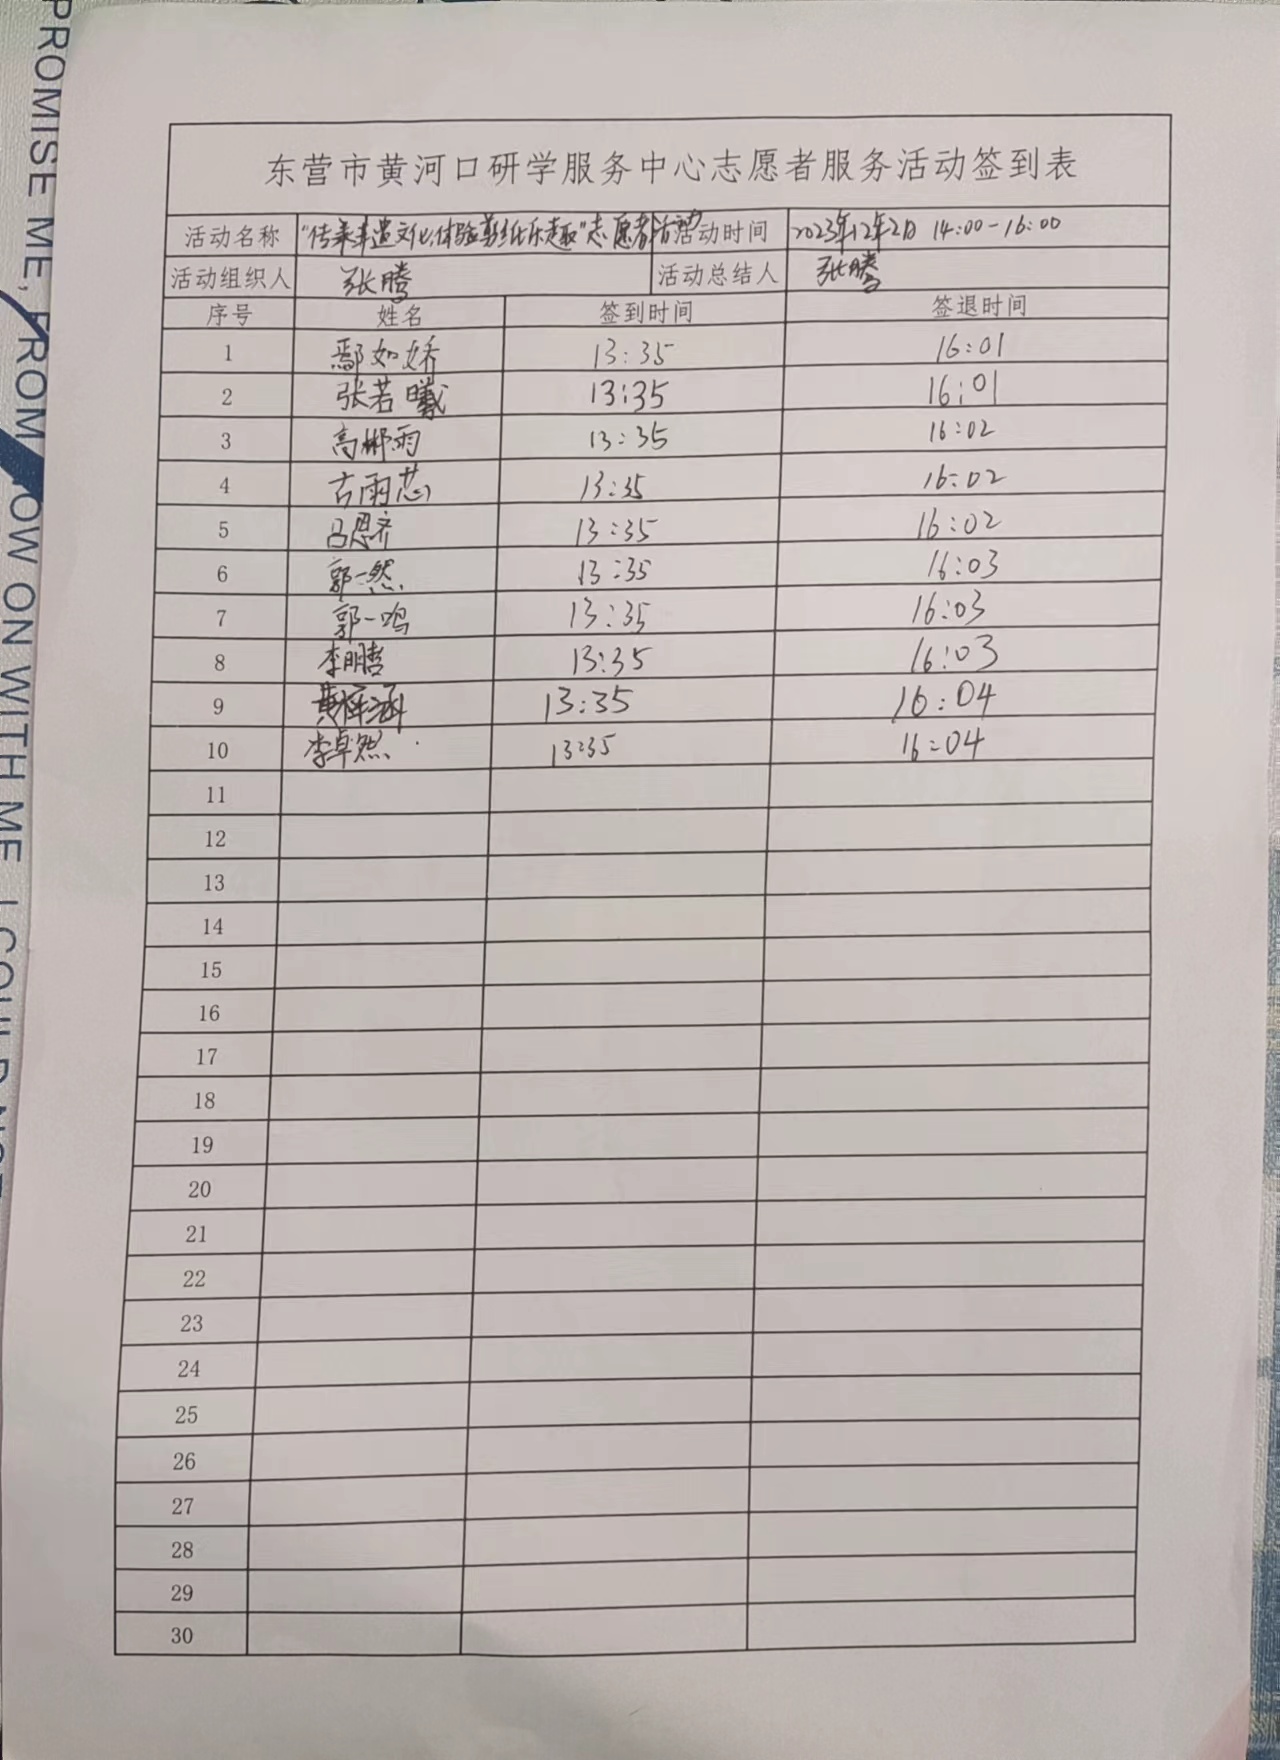 PROMISE ME, FROM NOW ON WITH ME I COULD NOT
东营市黄河口研学服务中心志愿者服务活动签到表
活动名称 "传承非遗文化,体验剪纸乐趣"志愿者活动 活动时间 2023年12年2日 14:00-16:00
活动组织人 张腾 活动总结人 张腾
序号 姓名 签到时间 签退时间
1 鄢如娇 13:35 16:01
2 张若曦 13:35 16:01
3 高郴雨 13:35 16:02
4 古雨芯 13:35 16:02
5 吕恩齐 13:35 16:02
6 郭一然 13:35 16:03
7 郭一鸣 13:35 16:03
8 李明哲 13:35 16:03
9 黄梓涵 13:35 16:04
10 李卓然 13:35 16:04
11
12
13
14
15
16
17
18
19
20
21
22
23
24
25
26
27
28
29
30